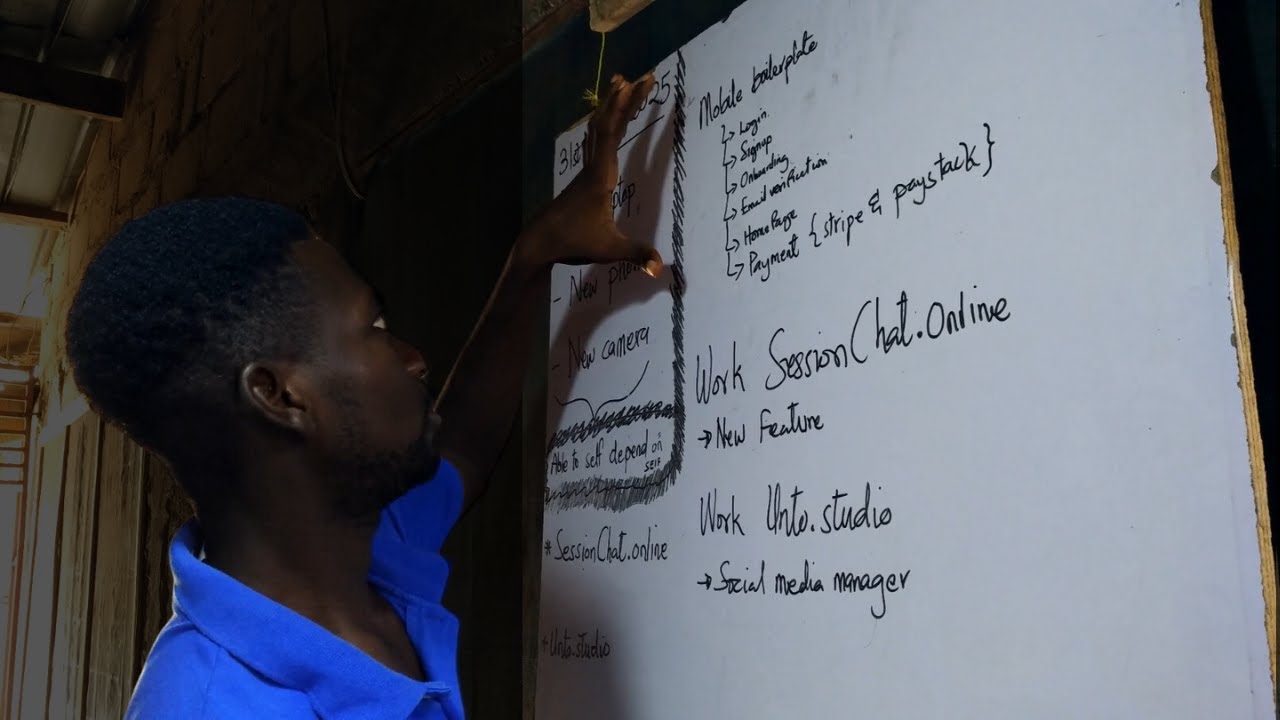 31st
025
- New phon
- New camera
Able to self depend on
SELF
* SessionChat.online
* Unto.studio
Mobile boilerplate
Login
Signup
Onboarding
Email verification
Home Page
Payment {stripe & paystack}
Work SessionChat.Online
→ New Feature
Work Unto.studio
→ Social media manager